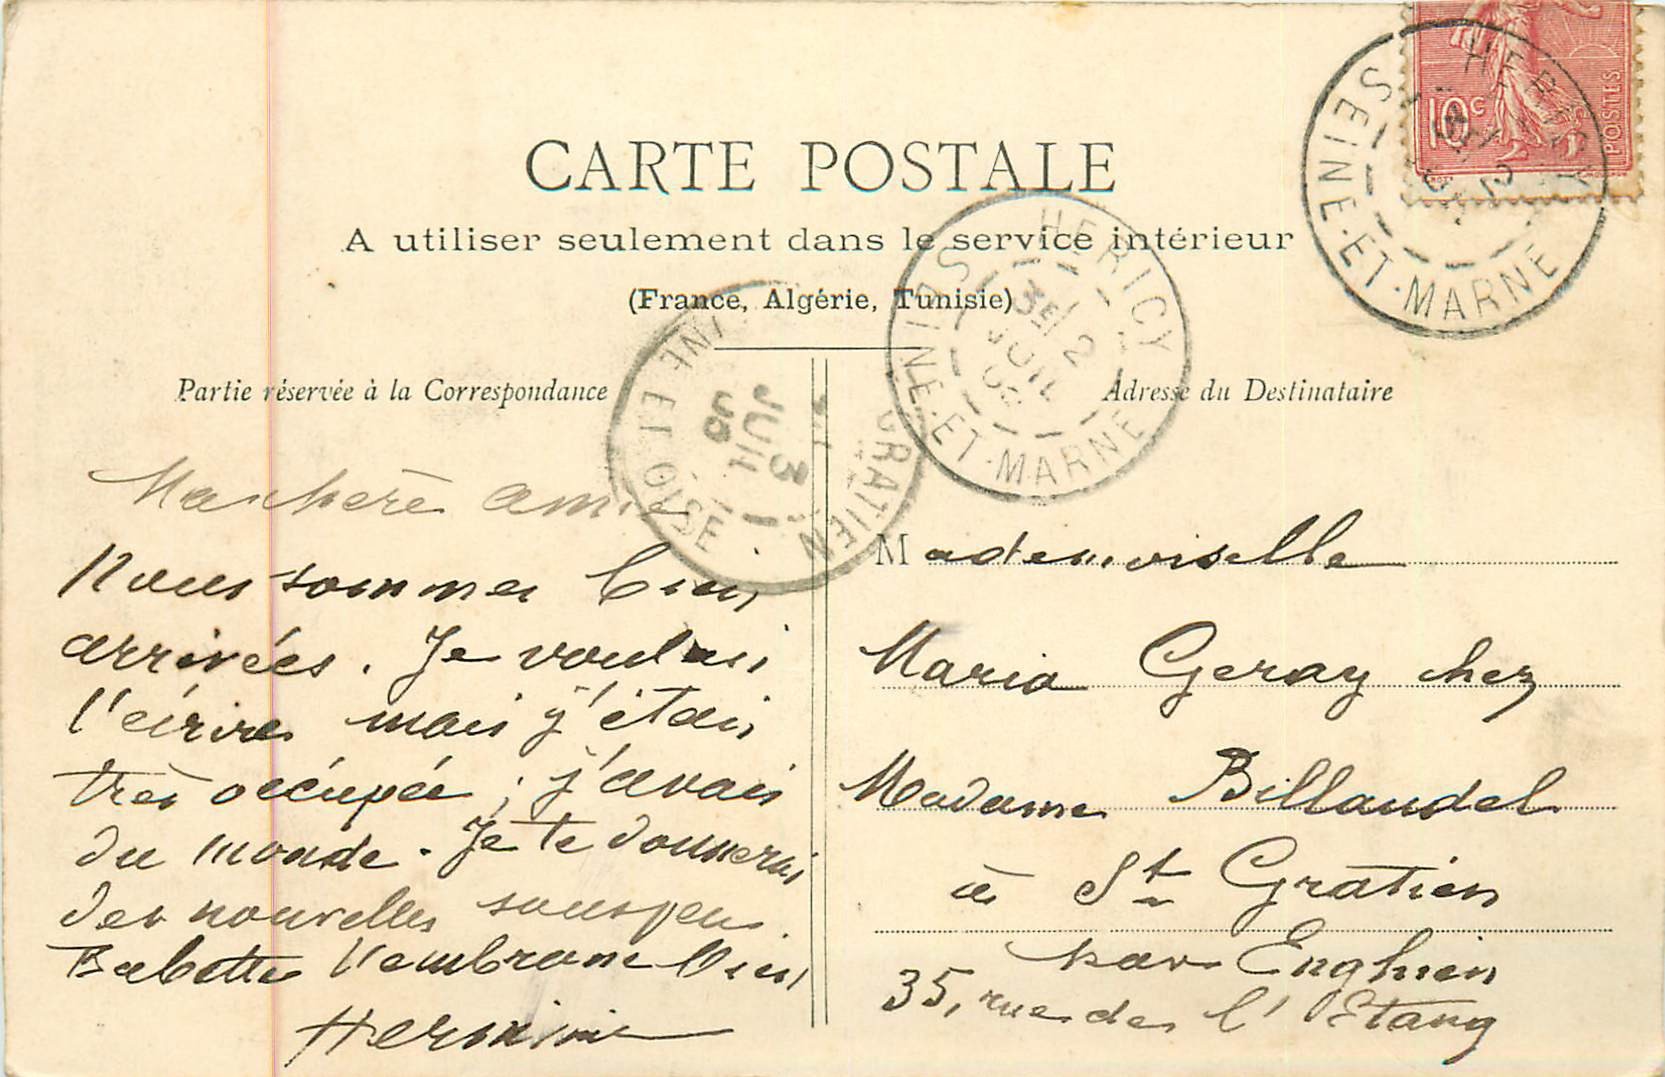 CARTE POSTALE
A utiliser seulement dans le service intérieur
(France, Algérie, Tunisie)
Partie réservée à la Correspondance
Adresse du Destinataire
10c
POSTES
HERICY
SEINE-ET-MARNE
HERICY
SEINE-ET-MARNE
3E
2
JUIL
GRATIEN
SEINE ET OISE
3
JUIL
Ma chère amie
Nous sommes bien
arrivées. Je voulais
t'écrire mais j'étais
très occupée ; j'avais
du monde. Je te donnerai
des nouvelles sous peu
Babette t'embrasse bien
Hermine
Mademoiselle
Maria Geray chez
Madame Billaudel
à St Gratien
par Enghien
35, rue de l'Etang